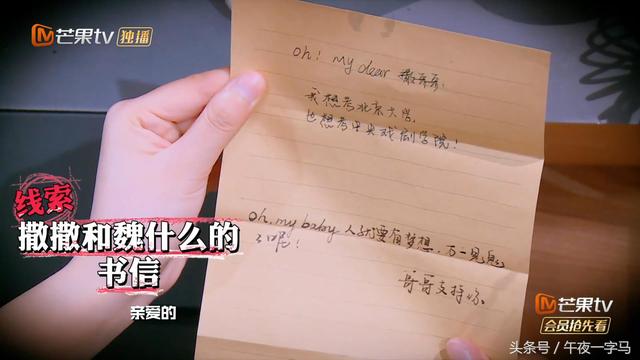 芒果tv 独播
oh! my dear 撒哥哥:
我想考北京大学,
也想考中央戏剧学院!
oh, my baby 人就要有梦想, 万一见鬼
了呢!
哥哥支持你.
线索
撒撒和魏什么的
书信
亲爱的
芒果tv
会员抢先看
头条号 / 午夜一字马